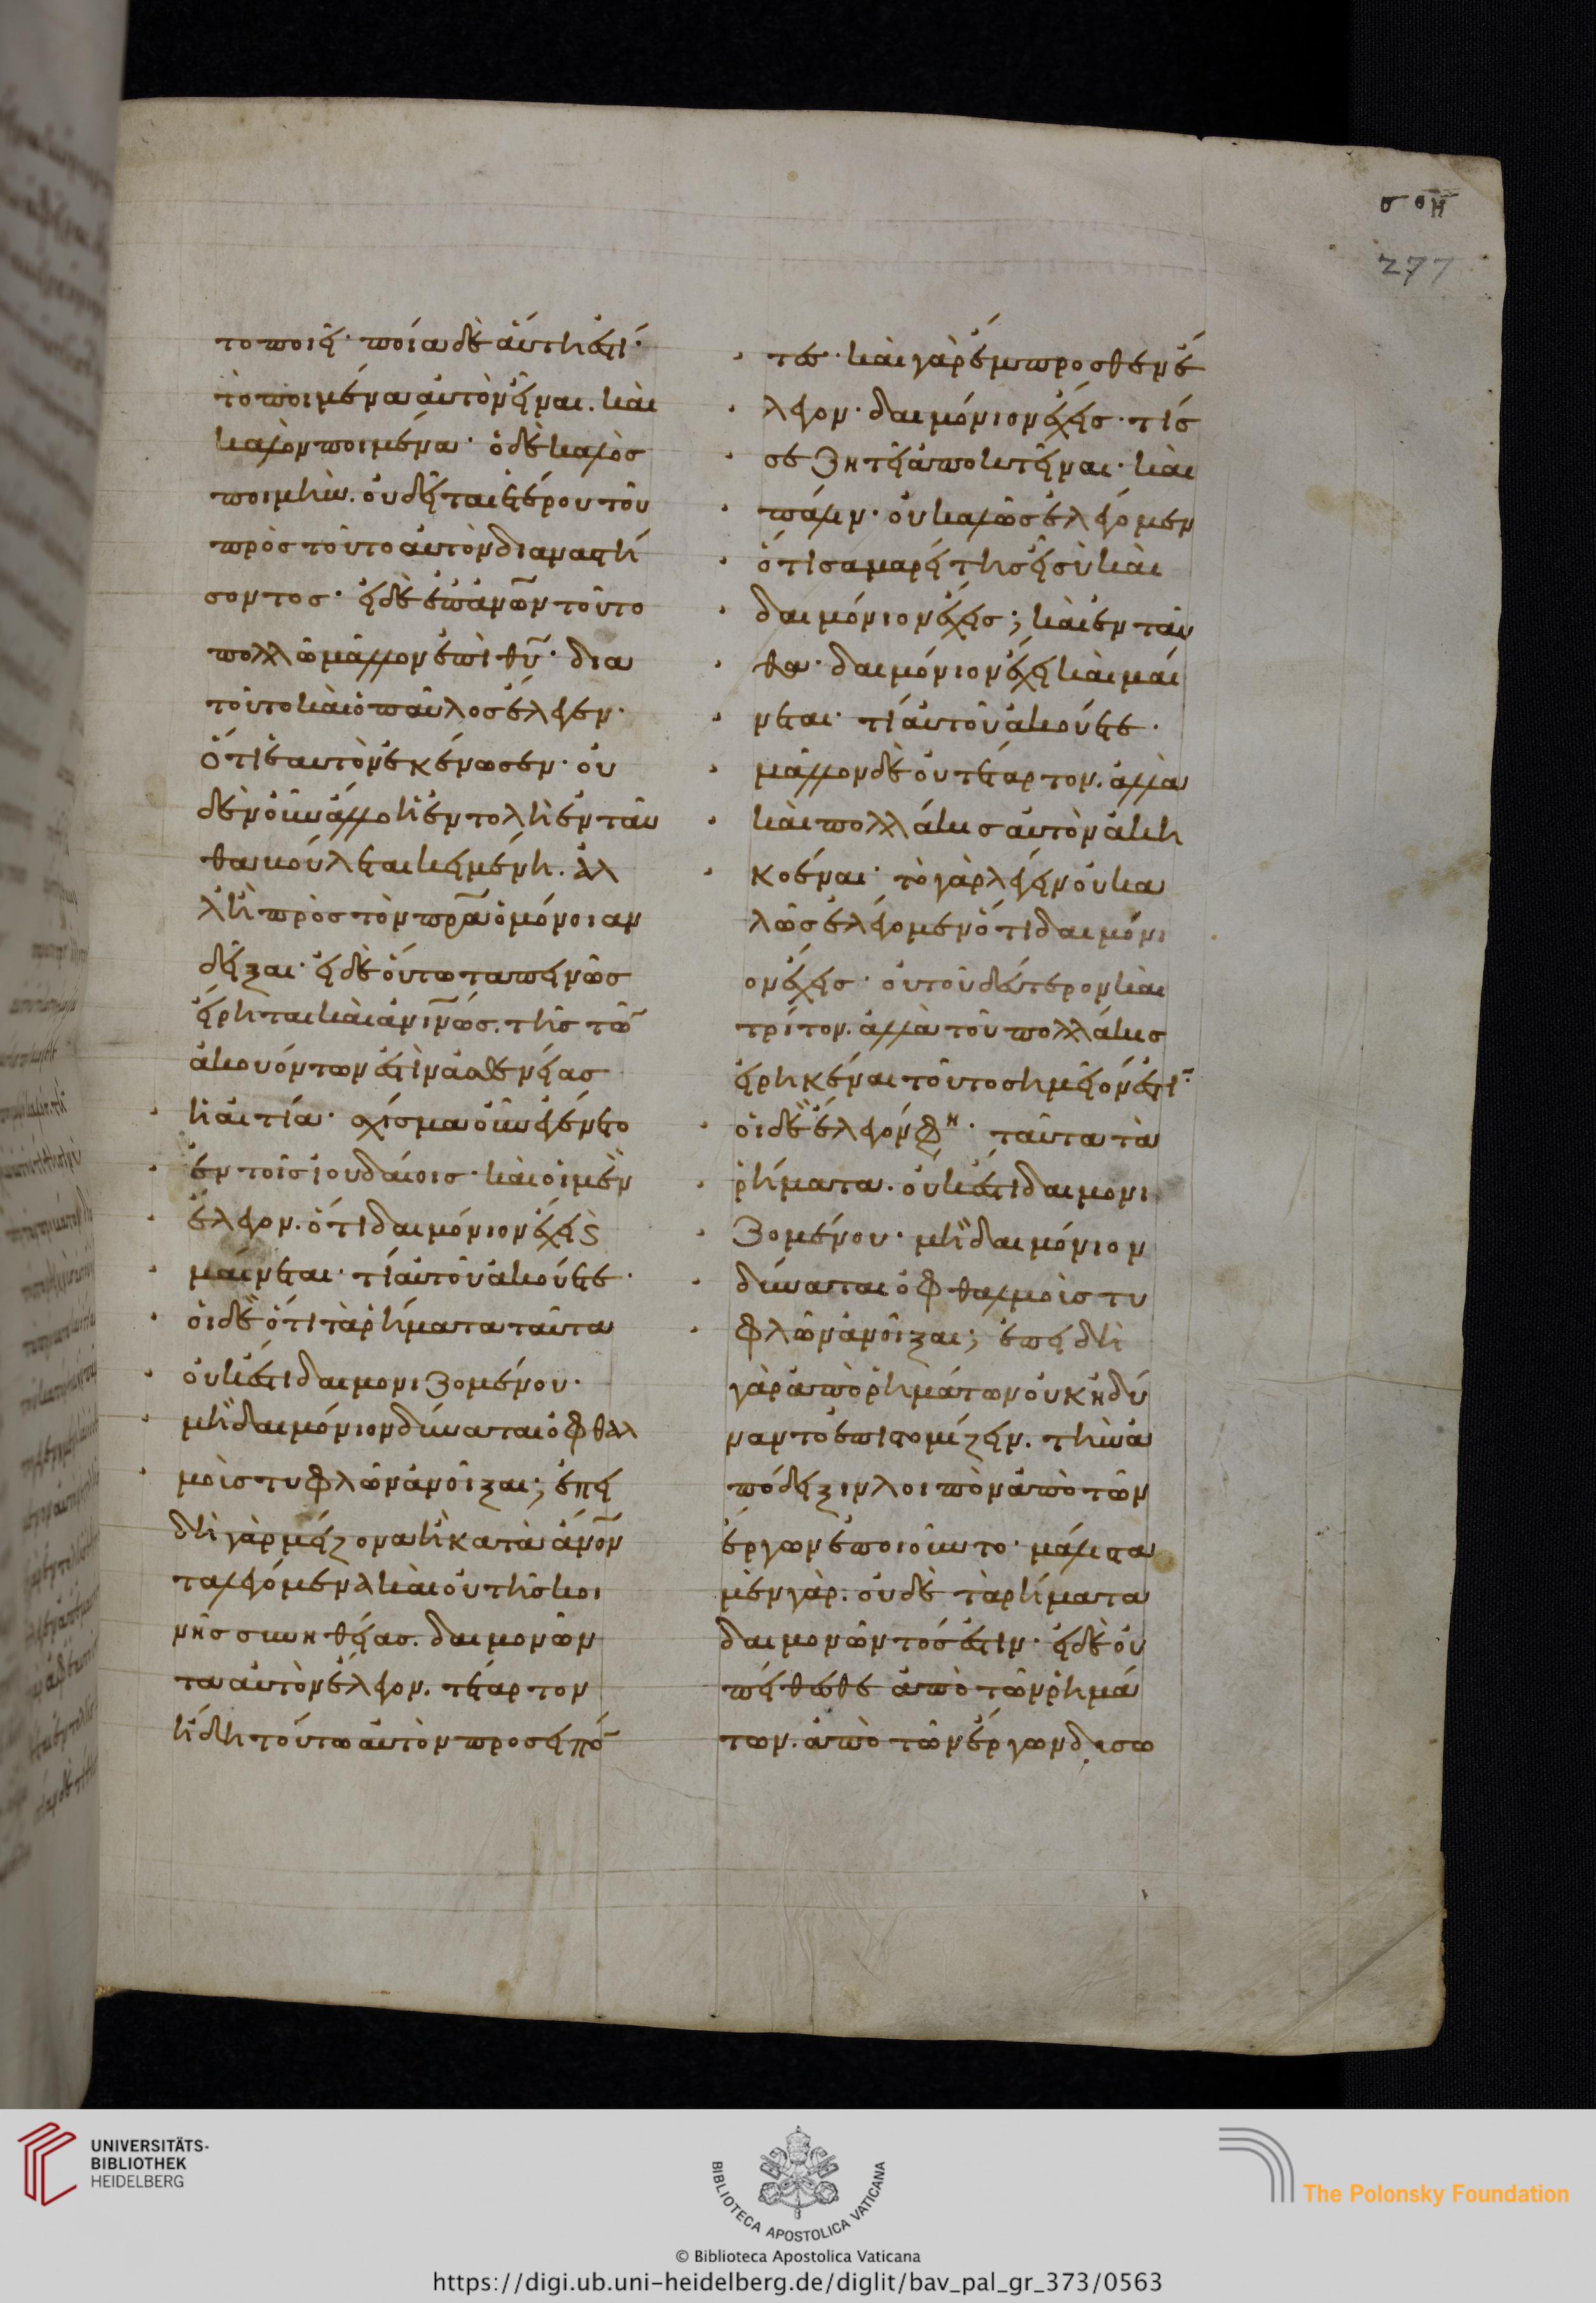 σοη
277
το ποιεῖ· ποία δὲ αὕτη ἐστί·
τὸ ποιμένα αὐτὸν εἶναι. καὶ
καλὸν ποιμένα· ὁ δὲ καλὸς
ποιμὴν. οὐ δεῖται ἑτέρου τοῦ
πρὸς τοῦτο αὐτὸν διαναστή
σοντος· εἰ δὲ ἐπὰνῶν τοῦτο
πολλῶ μᾶλλον ἐπὶ θῦ· δια
τοῦτο καὶ ὁ παῦλος ἔλεγεν·
ὅτι ἑαυτὸν ἐκένωσεν· οὐ
δὲν οὖν ἄλλο ἡ ἐντολὴ ἐνταῦ
θα βούλεται κειμένη. ἀλ
λἢ πρὸς τὸν πρα̅ ὁμόνοιαν
δεῖξαι· εἰ δὲ οὕτω ταπεινῶς
εἴρηται καὶ ἀνι̅νως. τῆς τῶ̅
ἀκουόντων ἐστὶν ἀσθενείας
ἡ αἰτία· σχίσμα οὖν ἐγένετο
ἐν τοῖς ἰουδαίοις· καὶ οἱ μὲν
ἔλεγον. ὅτι δαιμόνιον ἔχει ϛ
μαίνεται· τί αὐτοῦ ἀκούετε·
οἱ δὲ ὅτι τὰ ῥήματα ταῦτα
οὐκ ἔστι δαιμονιζομένου·
μὴ δαιμόνιον δύναται ὀφθαλ
μοὶς τυφλῶν ἀνοῖξαι; ἐπει
δὴ γὰρ μείζονα ἢ κατὰ ἄνο̅ν
τα λεγόμενα καὶ οὐ τῆς κοι
νῆς συνηθείας. δαιμονῶν
τα αὐτὸν ἔλεγον. τέταρτον
ἤδη τούτω αὐτὸν προσειπό̅
τες· καὶ γὰρ ἔμπροσθεν ἔ
λεγον· δαιμόνιον ἔχεις· τίς
σε ζητεῖ ἀποκτεῖναι· καὶ
πάλιν· οὐ καλῶς ἐλέγομεν
ὅτι σαμαρείτης εἶ σὺ καὶ
δαιμόνιον ἔχεις; καὶ ἐνταῦ
θα· δαιμόνιον ἔχει καὶ μαί
νεται· τί αὐτοῦ ἀκούετε·
μᾶλλον δὲ οὐ τέταρτον. ἀλλὰ
καὶ πολλάκις αὐτὸν ἀκη
κοέναι· τὸ γὰρ λέγειν οὐ κα
λῶς ἐλέγομεν ὅτι δαιμόνι
ον ἔχεις· οὐ τοῦ δεύτερον καὶ
τρίτον. ἀλλὰ τοῦ πολλάκις
εἰρηκέναι τοῦτο σημεῖόν ἐστι̅
οἱ δὲ ἔλεγον φη· ταῦτα τὰ
ῥήματα. οὐκ ἔστι δαιμονι
ζομένου· μὴ δαιμόνιον
δύναται ὀφθαλμοὶς τυ
φλῶν ἀνοῖξαι; ἐπειδὴ
γὰρ ἀπὸ ῥημάτων οὐκ ηδύ
ναντο ἐπιστομίζειν. τὴν ἀ
πόδειξιν λοιπὸν ἀπὸ τῶν
ἔργων ἐποιοῦντο· μάλιστα
μὲν γὰρ. οὐδὲ τὰ ρήματα
δαιμονῶντός ἐστιν· εἰ δὲ οὐ
πείθεσθε ἀπὸ τῶν ῥημά
των. ἀπὸ τῶν ἔργων δυσω
UNIVERSITÄTS-
BIBLIOTHEK
HEIDELBERG
BIBLIOTECA APOSTOLICA VATICANA
The Polonsky Foundation
© Biblioteca Apostolica Vaticana
https://digi.ub.uni-heidelberg.de/diglit/bav_pal_gr_373/0563